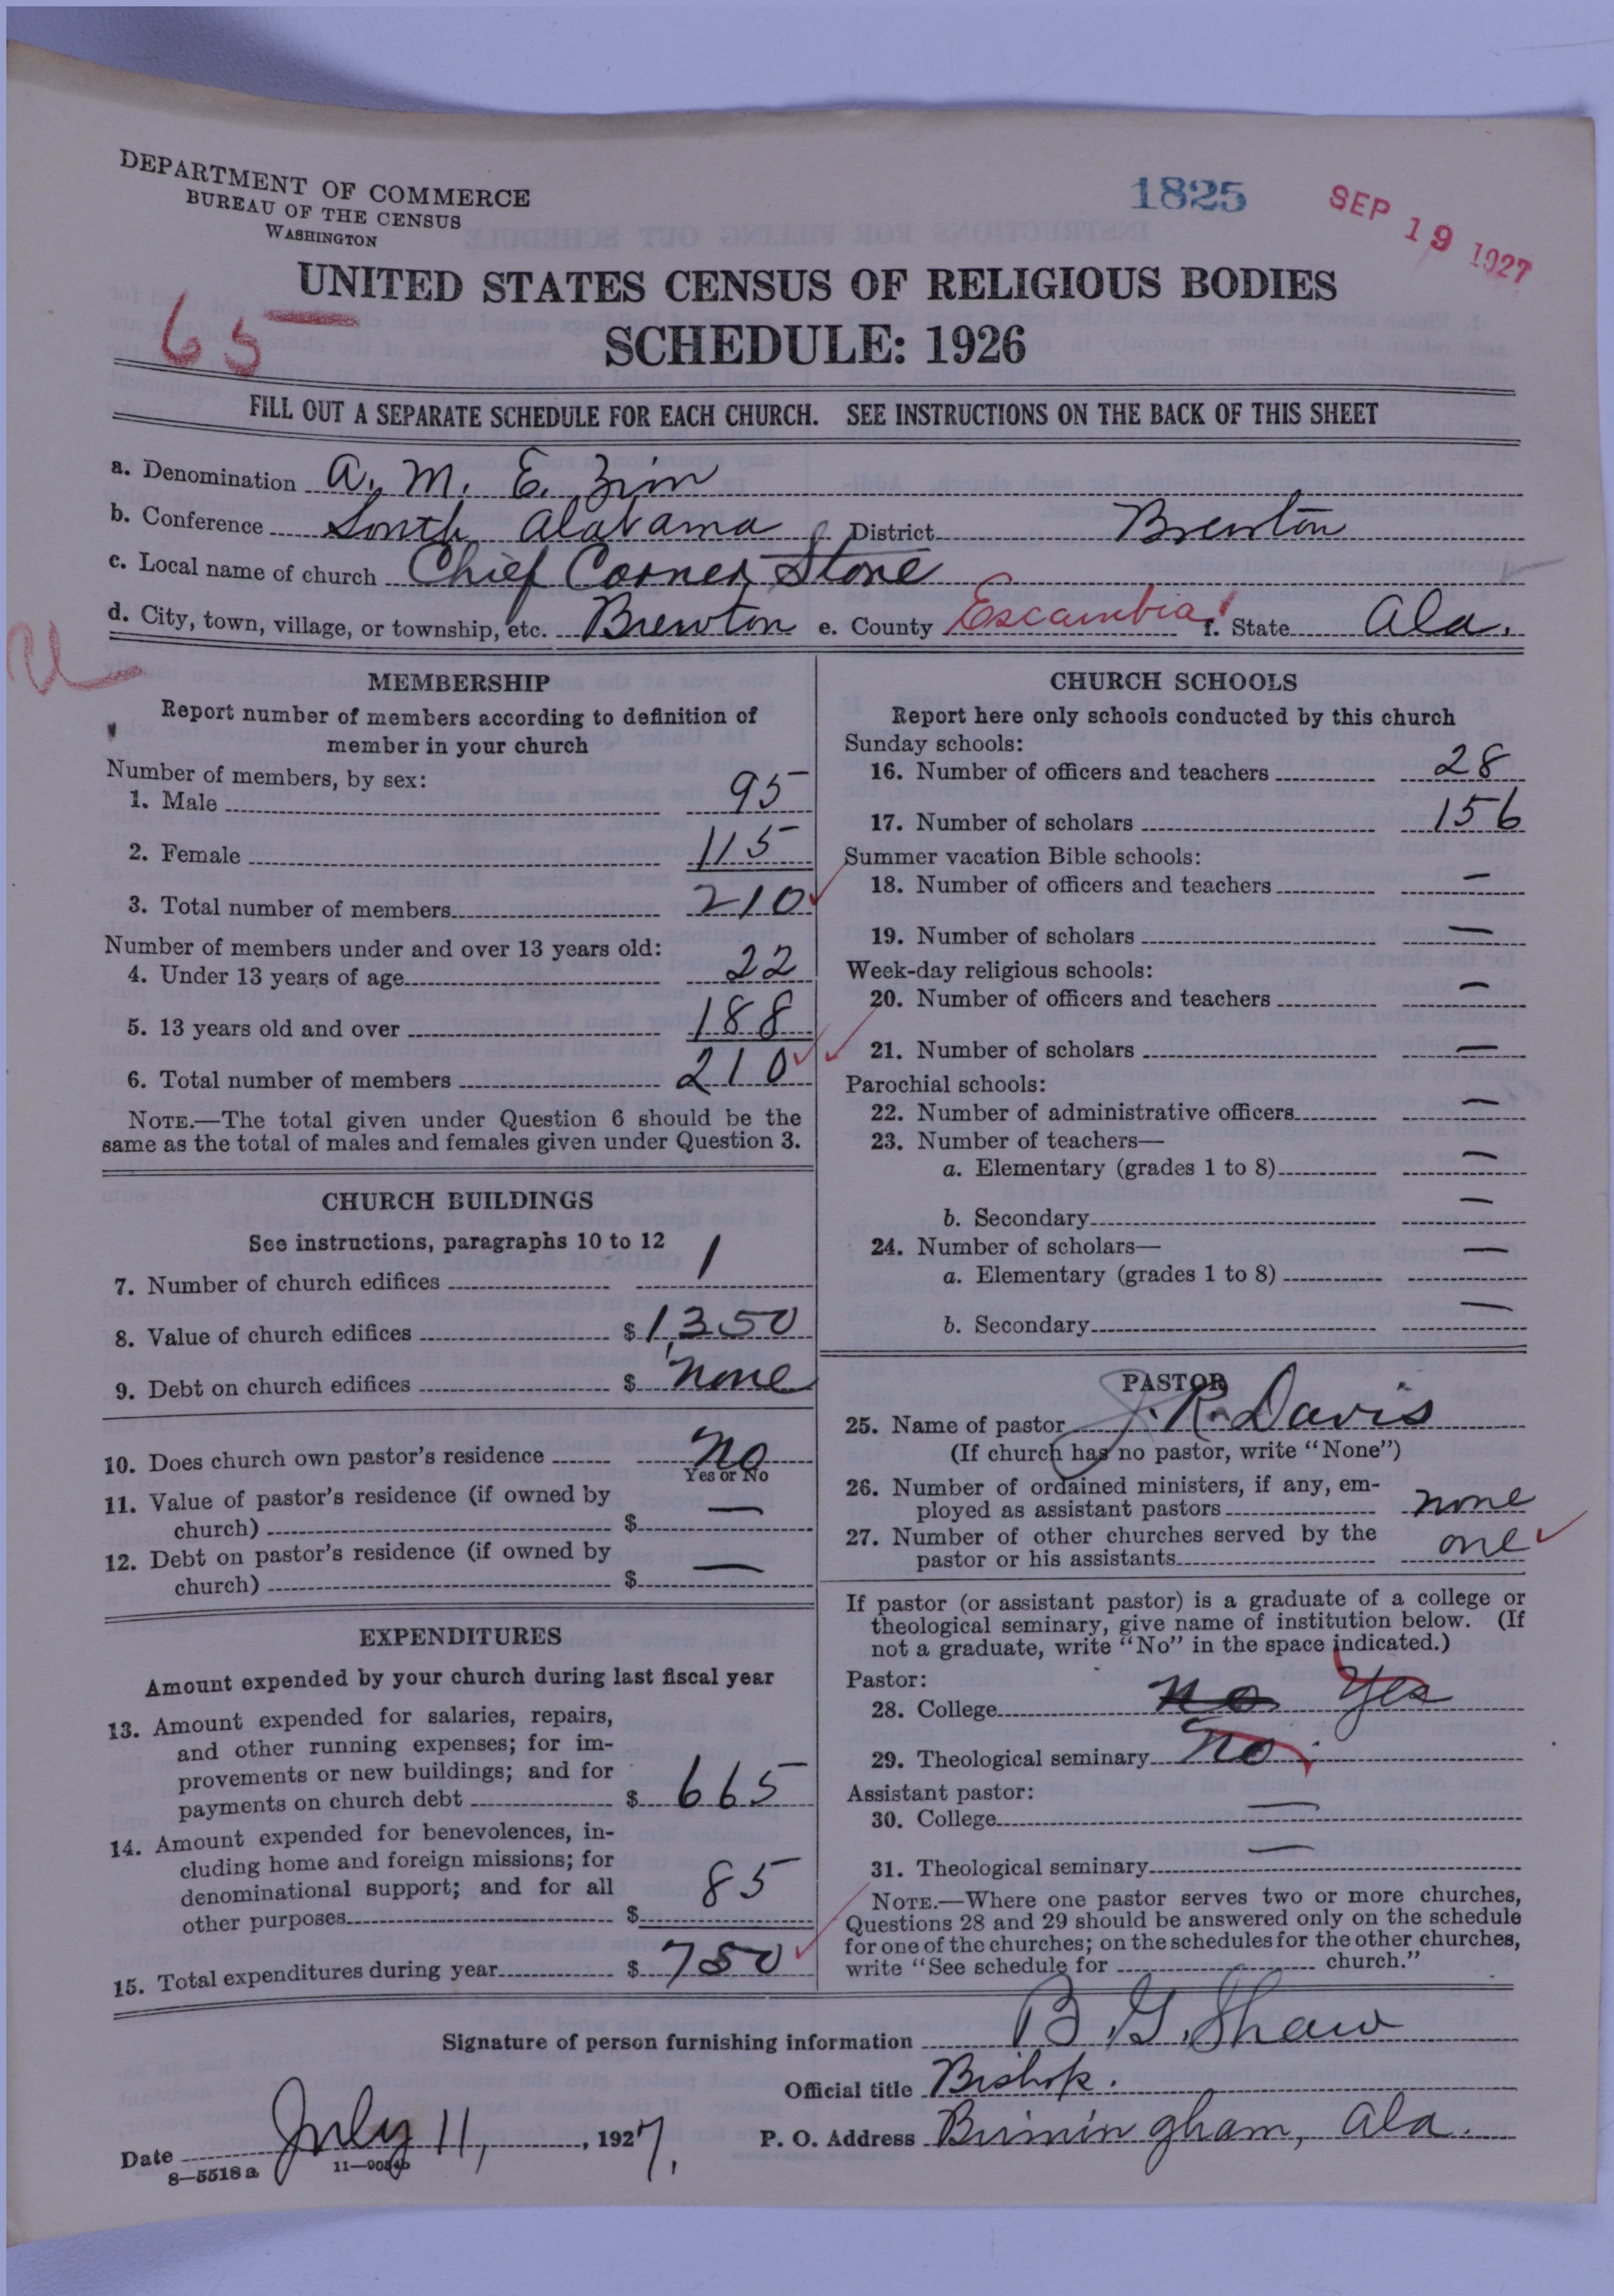 DEPARTMENT OF COMMERCE
BUREAU OF THE CENSUS
WASHINGTON
1825
SEP 19 1927
UNITED STATES CENSUS OF RELIGIOUS BODIES
65
SCHEDULE: 1926
FILL OUT A SEPARATE SCHEDULE FOR EACH CHURCH. SEE INSTRUCTIONS ON THE BACK OF THIS SHEET
a. Denomination A. M. E. Zion
b. Conference South Alabama District Brewton
c. Local name of church Chief Corner Stone
d. City, town, village, or township, etc. Brewton e. County Escambia f. State Ala.
MEMBERSHIP
Report number of members according to definition of
member in your church
Number of members, by sex:
1. Male 95
2. Female 115
3. Total number of members 210
Number of members under and over 13 years old:
4. Under 13 years of age 22
5. 13 years old and over 188
6. Total number of members 210
NOTE.—The total given under Question 6 should be the
same as the total of males and females given under Question 3.
CHURCH BUILDINGS
See instructions, paragraphs 10 to 12
7. Number of church edifices 1
8. Value of church edifices $ 1,350
9. Debt on church edifices $ none
10. Does church own pastor's residence No
Yes or No
11. Value of pastor's residence (if owned by
church) $ —
12. Debt on pastor's residence (if owned by
church) $ —
EXPENDITURES
Amount expended by your church during last fiscal year
13. Amount expended for salaries, repairs,
and other running expenses; for im-
provements or new buildings; and for
payments on church debt $ 665
14. Amount expended for benevolences, in-
cluding home and foreign missions; for
denominational support; and for all
other purposes $ 85
15. Total expenditures during year $ 750
CHURCH SCHOOLS
Report here only schools conducted by this church
Sunday schools:
16. Number of officers and teachers 28
17. Number of scholars 156
Summer vacation Bible schools:
18. Number of officers and teachers —
19. Number of scholars —
Week-day religious schools:
20. Number of officers and teachers —
21. Number of scholars —
Parochial schools:
22. Number of administrative officers —
23. Number of teachers—
a. Elementary (grades 1 to 8) —
b. Secondary —
24. Number of scholars—
a. Elementary (grades 1 to 8) —
b. Secondary —
PASTOR
25. Name of pastor J. R. Davis
(If church has no pastor, write "None")
26. Number of ordained ministers, if any, em-
ployed as assistant pastors none
27. Number of other churches served by the
pastor or his assistants one
If pastor (or assistant pastor) is a graduate of a college or
theological seminary, give name of institution below. (If
not a graduate, write "No" in the space indicated.)
Pastor:
28. College no Yes
29. Theological seminary No
Assistant pastor:
30. College —
31. Theological seminary —
NOTE.—Where one pastor serves two or more churches,
Questions 28 and 29 should be answered only on the schedule
for one of the churches; on the schedules for the other churches,
write "See schedule for church."
Signature of person furnishing information B. G. Shaw
Official title Bishop.
Date July 11, 1927. P. O. Address Birmingham, Ala.
8—5518 a 11—9054b